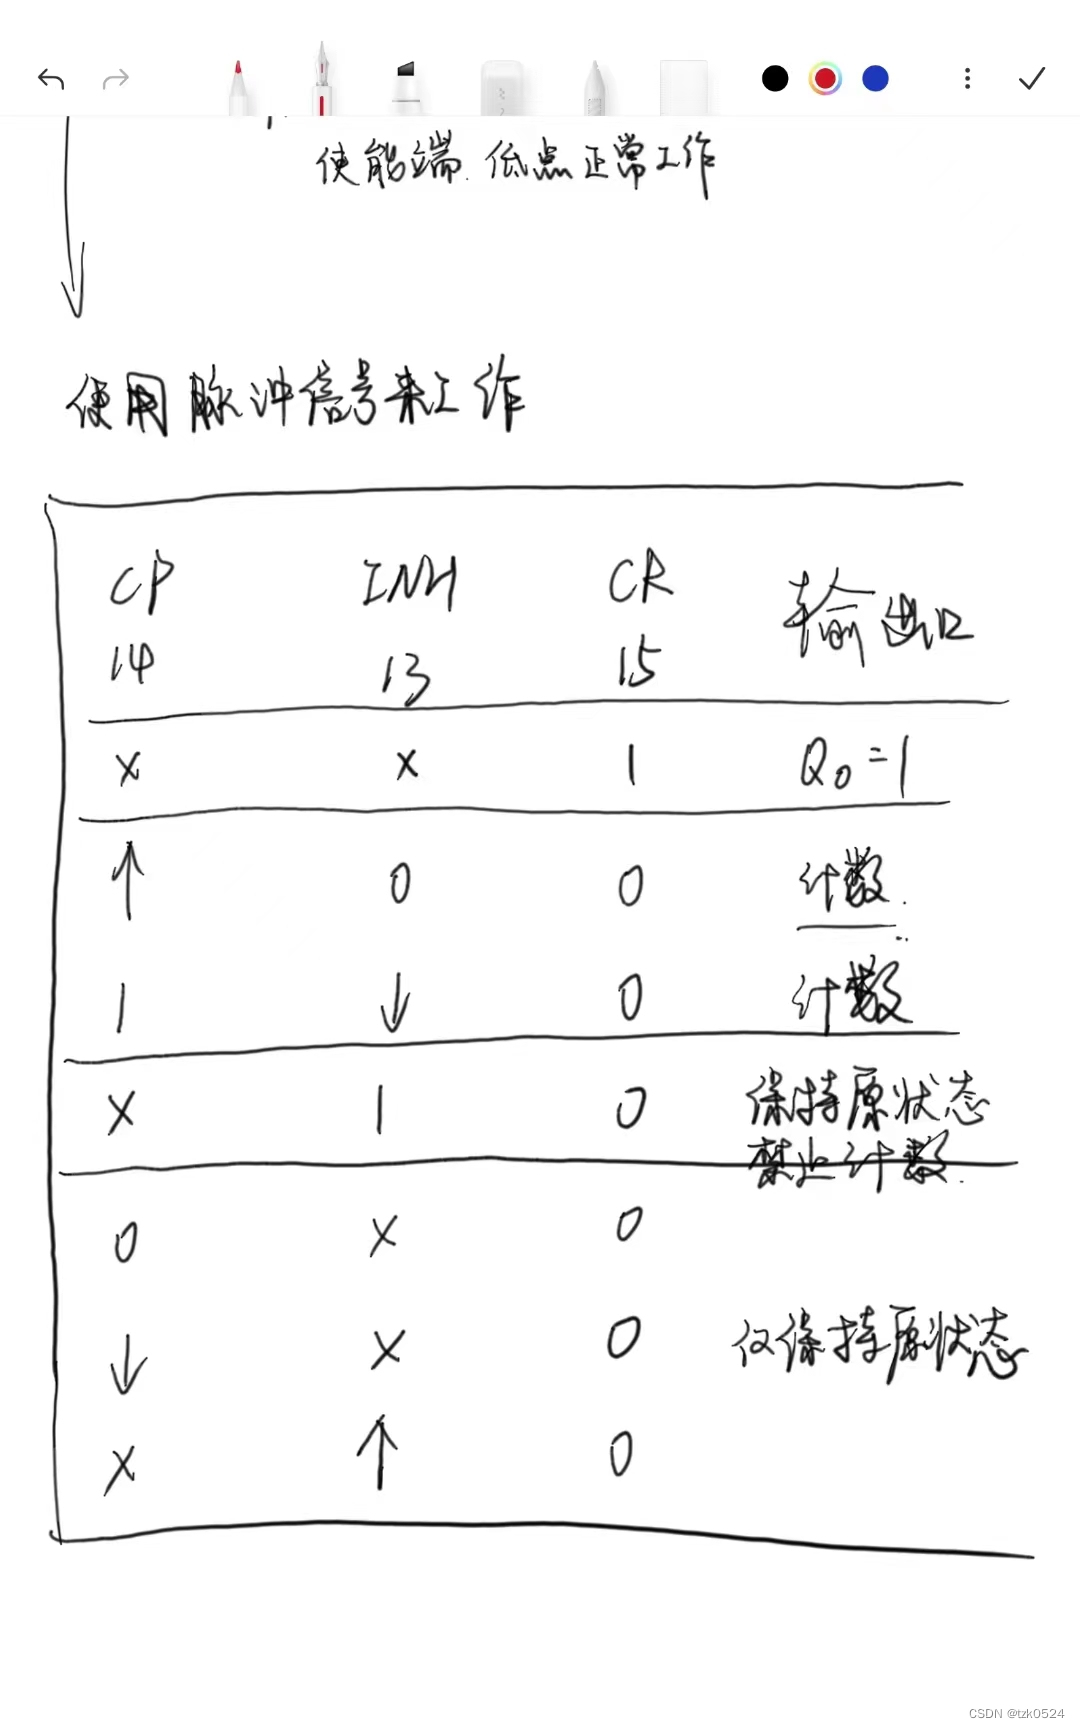 使能端. 低点正常工作
使用脉冲信号来工作
CP INH CR 输出口
14 13 15
x x 1 Q0=1
↑ 0 0 计数.
1 ↓ 0 计数
x 1 0 保持原状态
禁止计数.
0 x 0
↓ x 0 仅保持原状态
x ↑ 0
CSDN @tzk0524